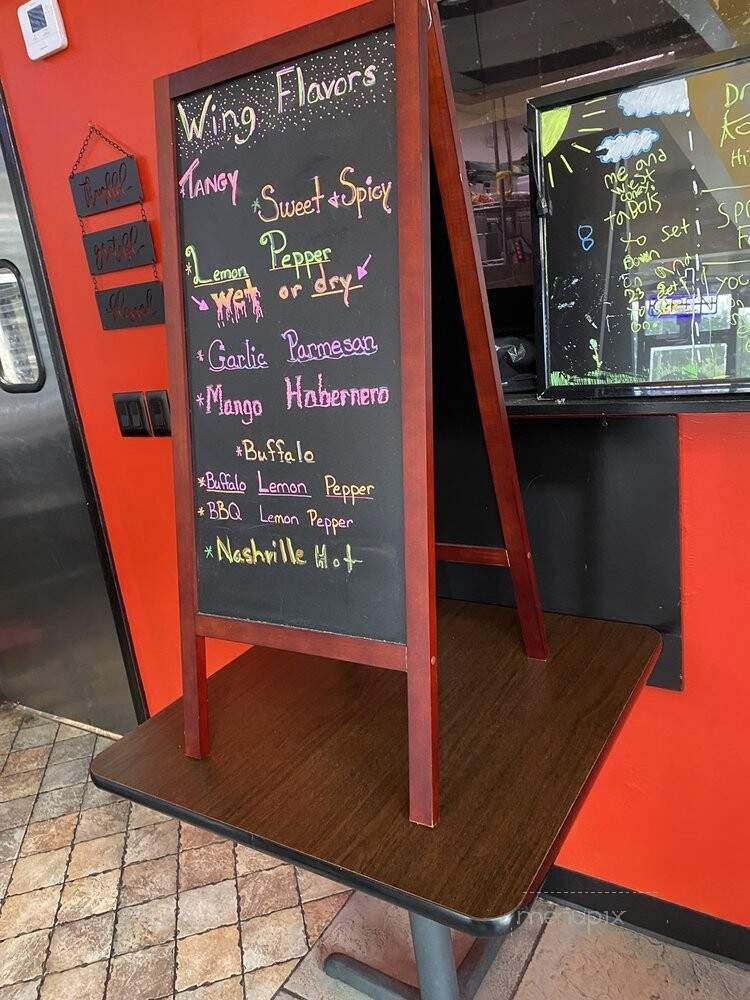 Wing Flavors
*TANGY
*Sweet & Spicy
*Lemon Pepper
wet or dry
*Garlic Parmesan
*Mango Habernero
*Buffalo
*Buffalo Lemon Pepper
*BBQ Lemon Pepper
*Nashville Hot
thankful
grateful
blessed
me and
to set
menupix